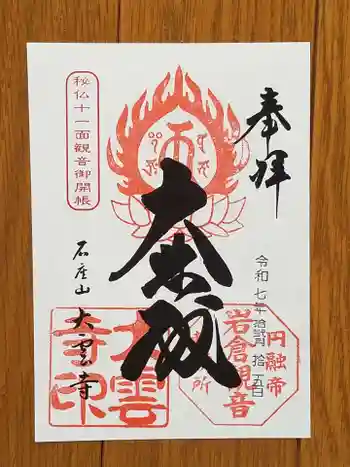 奉拝
令和七年拾弐月拾五日
円融帝
岩倉観音
所
秘仏十一面観音御開帳
石座山
大雲寺
大雲
寺印